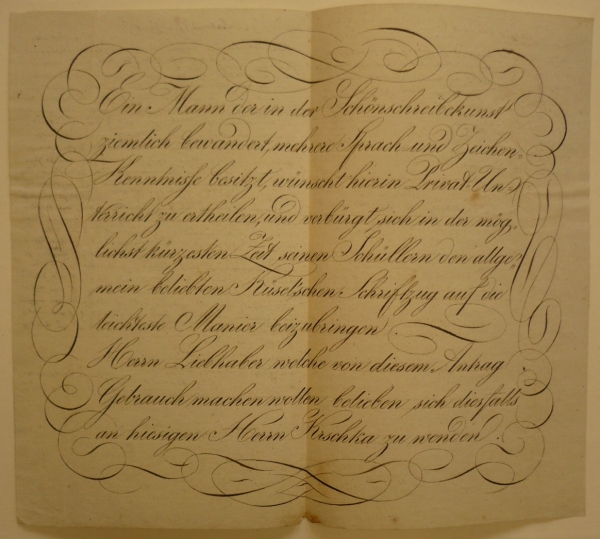 Ein Mann der in der Schönschreibekunst
ziemlich bewandert, mehrere Sprach und Zeichen-
Kenntnisse besitzt, wünscht hierin Privat-Un-
terricht zu ertheilen, und verbürgt sich in der mög-
lichst kürzesten Zeit seinen Schüllern den allge-
mein beliebten Rüsel'schen Schriftzug auf die
leichteste Manier beizubringen.
Herrn Liebhaber welche von diesem Antrag
Gebrauch machen wollen belieben sich diesfalls
an hiesigen Herrn Kirschka zu wenden.